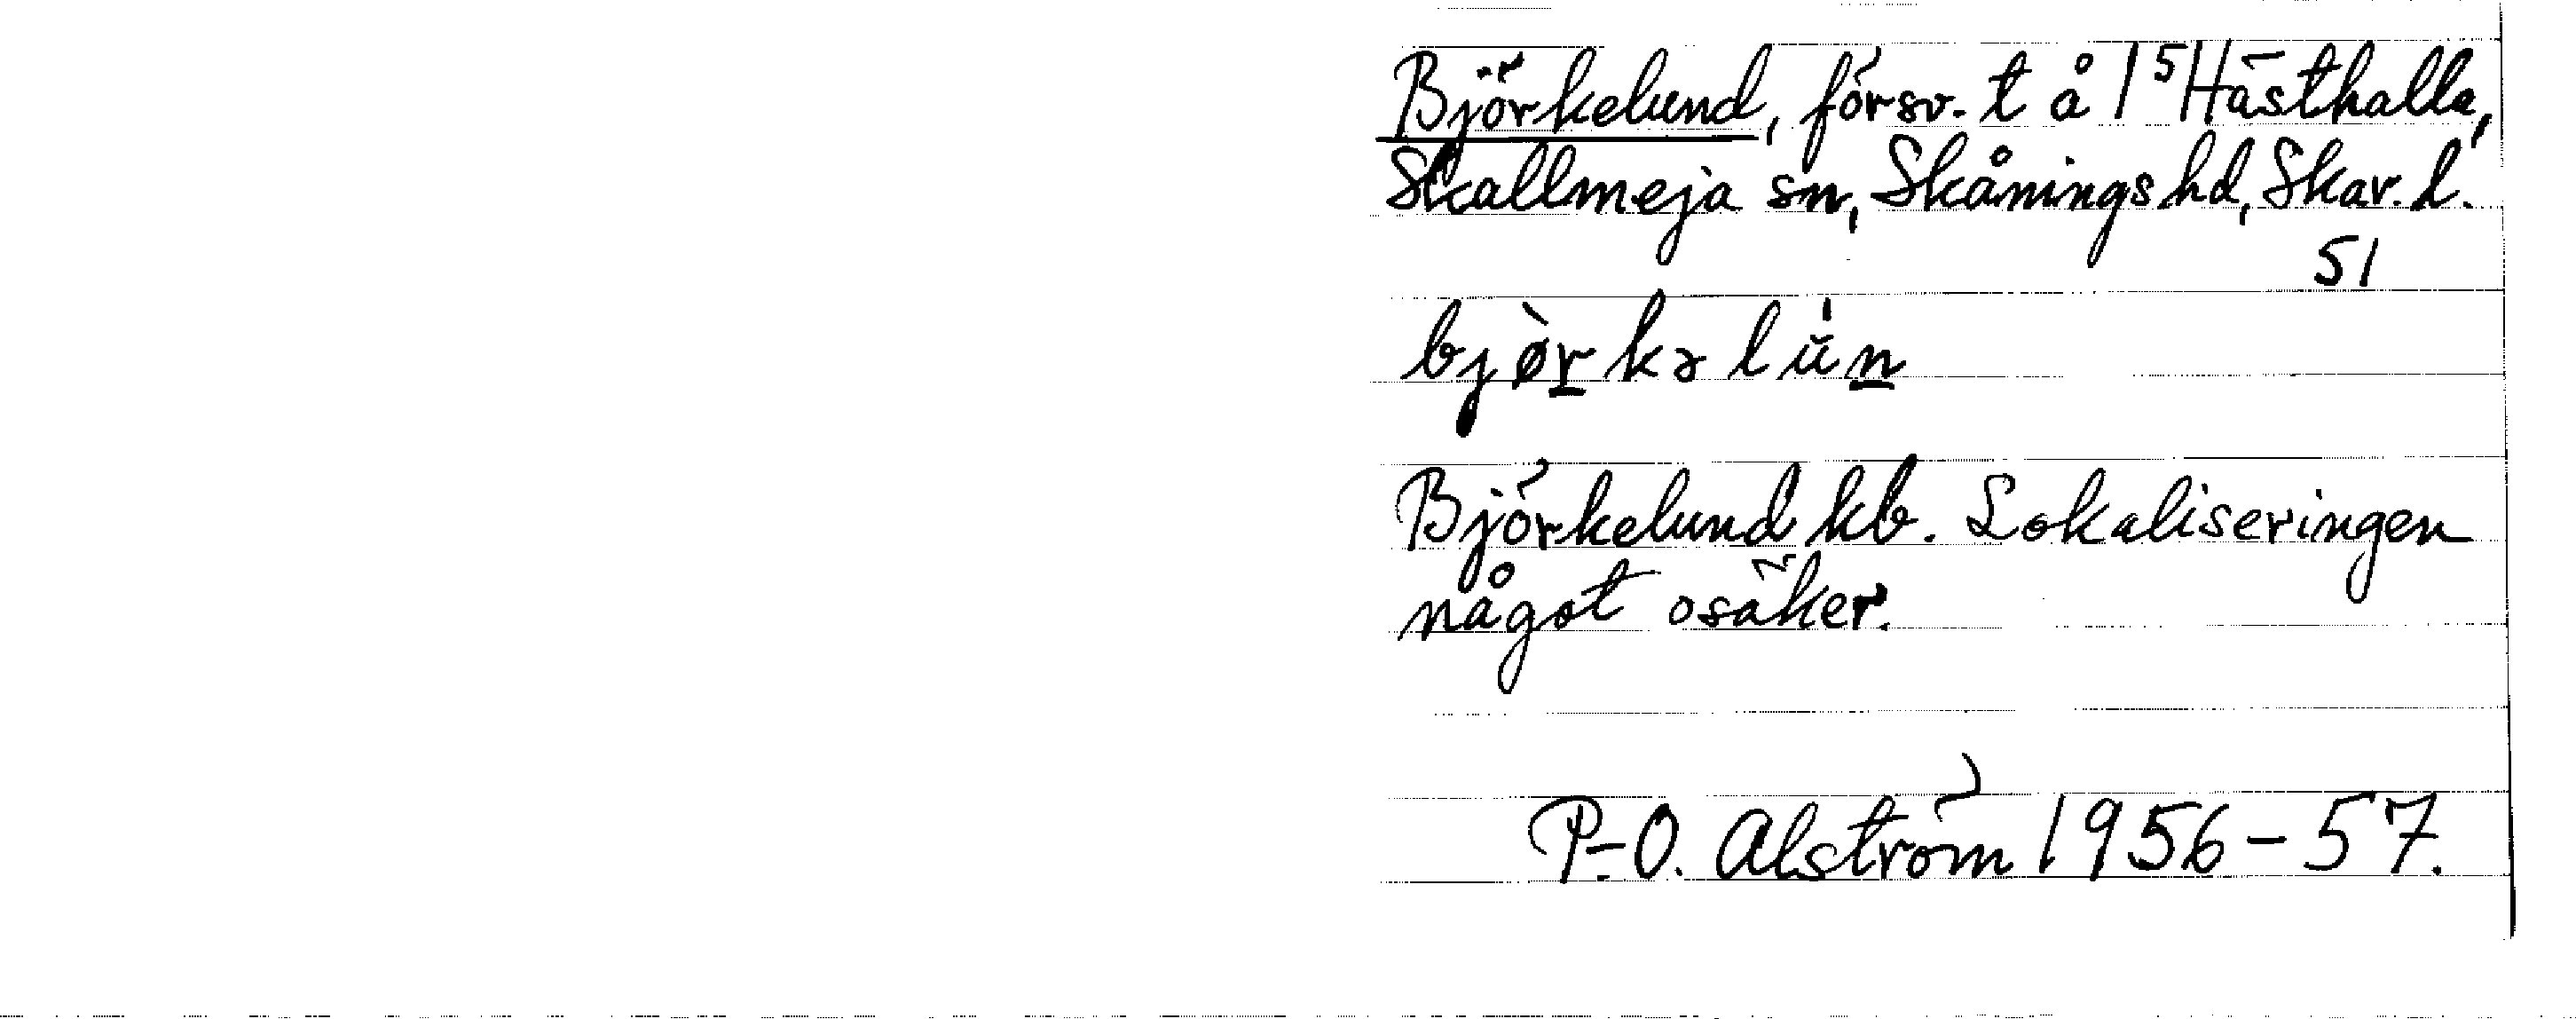 Björkelund, försv. t å 1⁵ Hästhalla,
Skallmeja sn, Skånings hd, Skar. l.
51
bjø̀rkəlún
Björkelund kb. Lokaliseringen
något osäker.
P-O. Alström 1956-57.